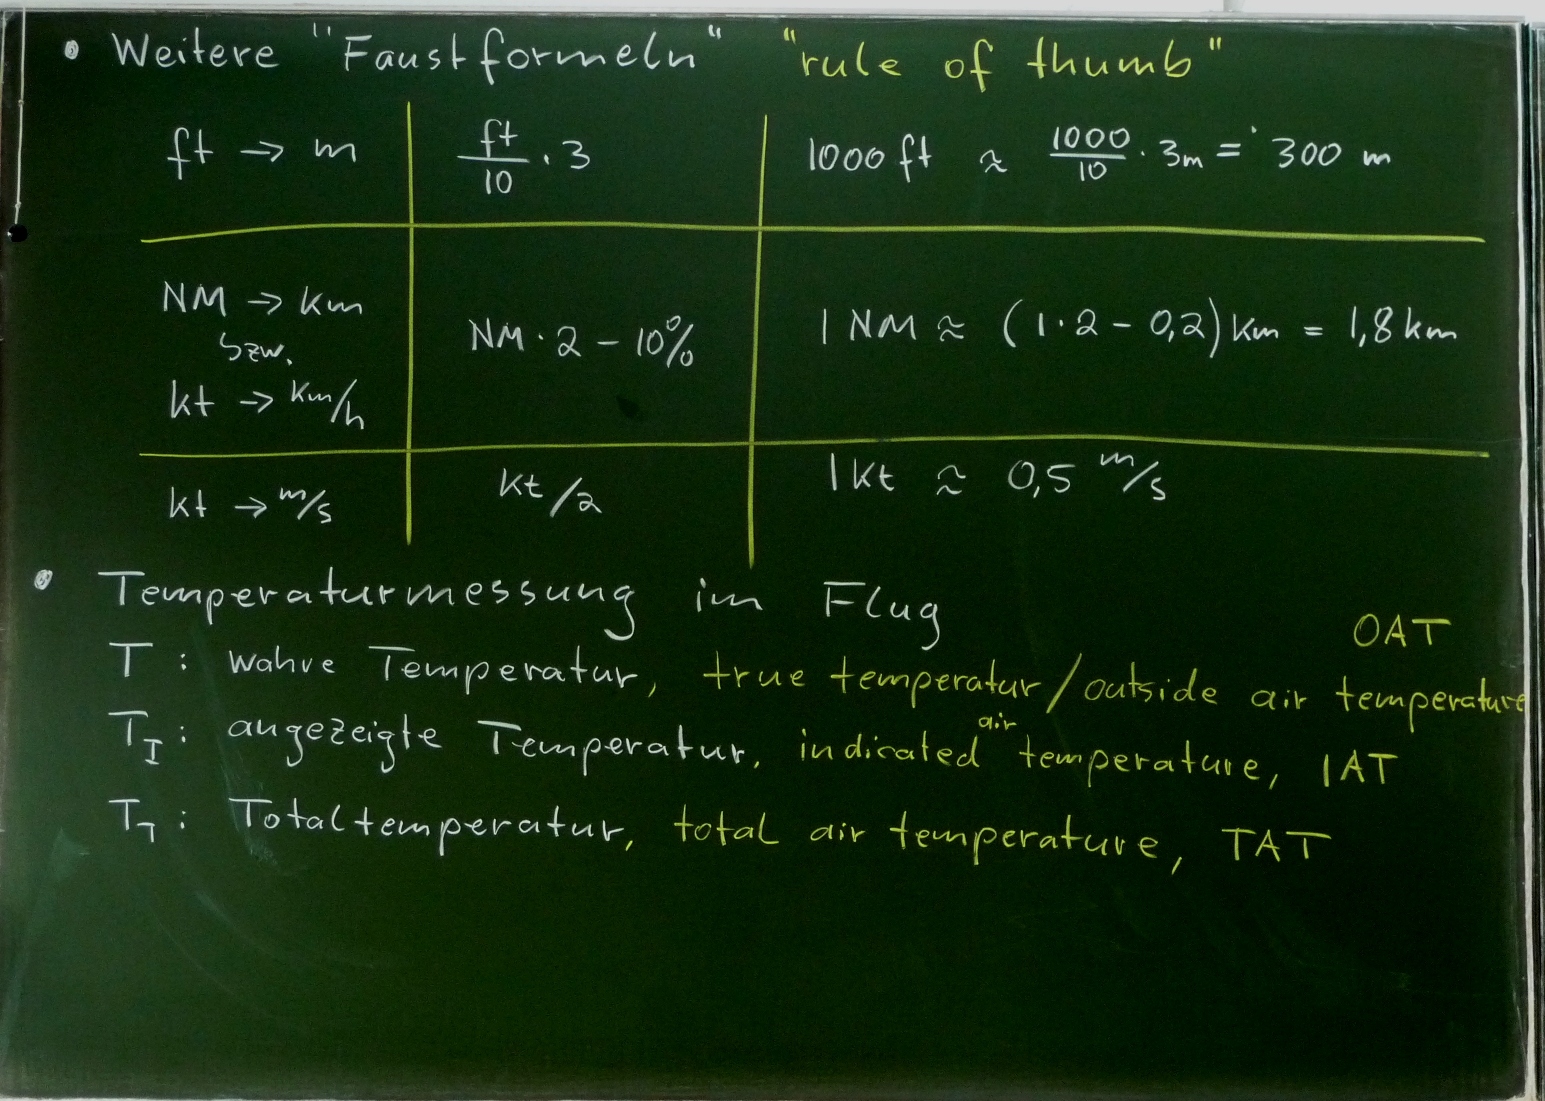 • Weitere "Faustformeln" "rule of thumb"
ft → m | ft/10 · 3 | 1000 ft ≈ 1000/10 · 3m = 300 m
NM → km
bzw.
kt → km/h | NM · 2 − 10% | 1 NM ≈ (1·2 − 0,2) km = 1,8 km
kt → m/s | kt/2 | 1kt ≈ 0,5 m/s
• Temperaturmessung im Flug
OAT
T : wahre Temperatur, true temperatur/outside air temperature
T_I : angezeigte Temperatur, indicated air temperature, IAT
T_T : Totaltemperatur, total air temperature, TAT